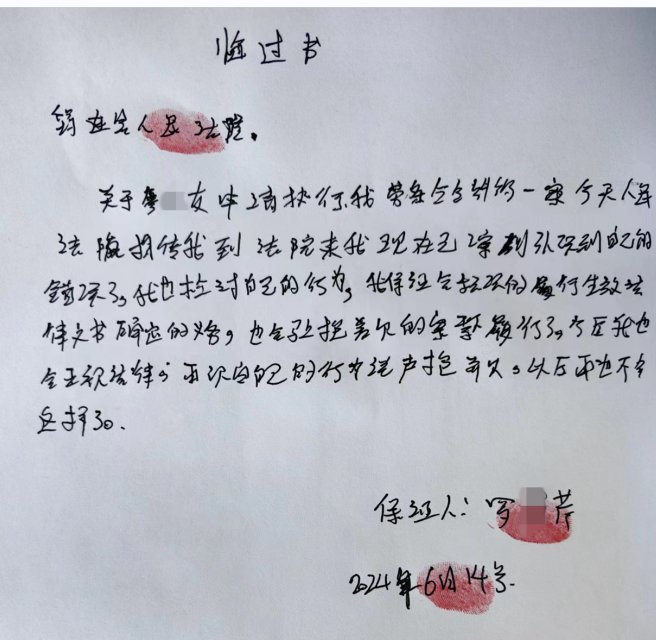 悔过书
人民法院。
关于 女申请执行我劳务合同纠纷一案今天人民
法院拘传我到法院来我现在已 认识到自己的
错误了,我也检讨自己的行为,我保证会 的履行生效法
律文书确定的义务,也会马上把差欠的案款履行了,今后我也
会正视法律,再次向自己的行为说声抱歉,以后再也不会
这样了。
保证人:罗 芹
2024年6月14号.